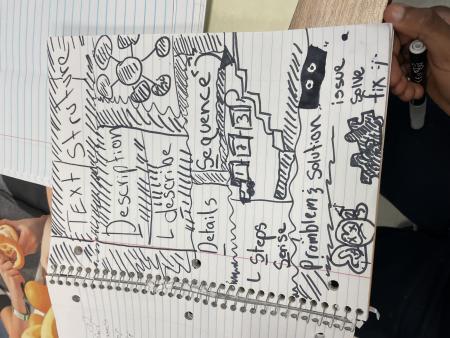 Text Strutrure
Description
describe
Details
Sequence
1 2 3
Steps
Serise
Promblem & Solution
issue
Solve
fix